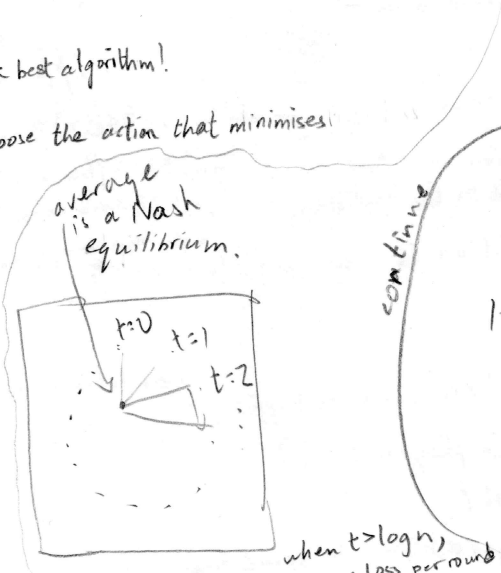 best algorithm!
oose the action that minimises
average
is a Nash
equilibrium.
continue
t=0
t=1
t=2
when t>logn,
loss per round